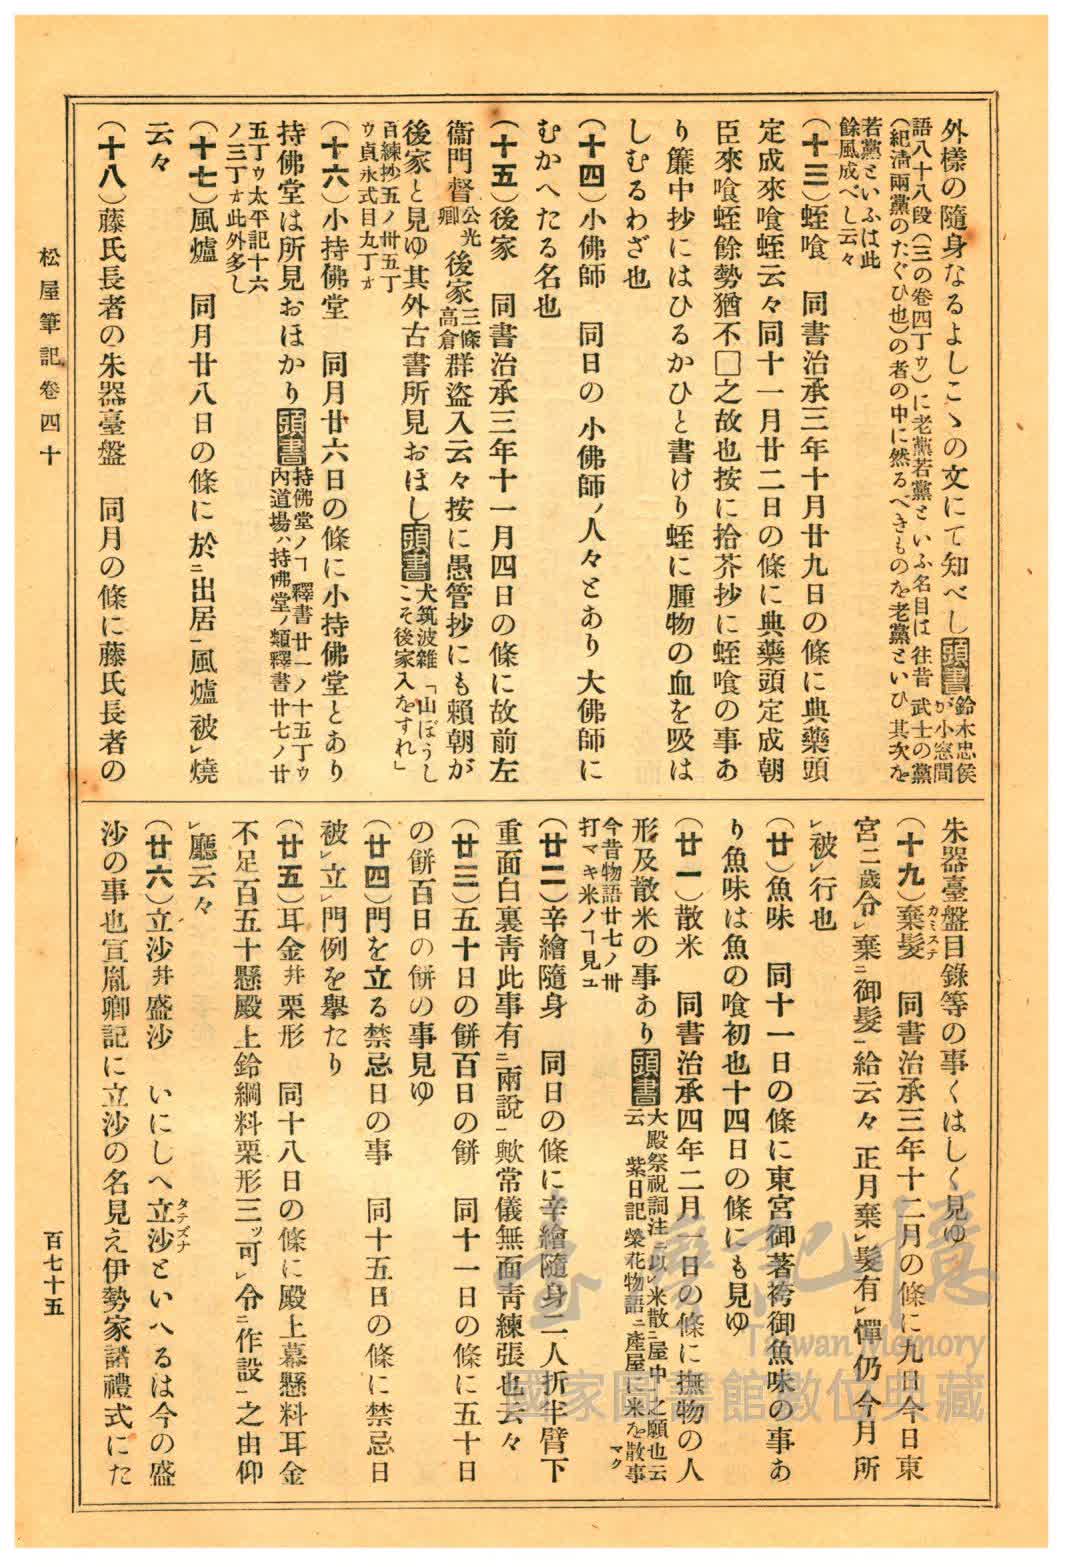 外樣の隨身なるよしこゝの文にて知べし頭書鈴木忠侯が小窓間
語八十八段(三の卷四丁ウ)に老黨若黨といふ名目は往昔武士の黨
(紀清兩黨のたぐひ也)の者の中に然るべきものを老黨といひ其次を
若黨といふは此
餘風成べし云々
(十三)蛭喰　同書治承三年十月廿九日の條に典藥頭
定成來喰蛭云々同十一月廿二日の條に典藥頭定成朝
臣來喰蛭餘勢猶不□之故也按に拾芥抄に蛭喰の事あ
り簾中抄にはひるかひと書けり蛭に腫物の血を吸は
しむるわざ也
(十四)小佛師　同日の小佛師ノ人々とあり大佛師に
むかへたる名也
(十五)後家　同書治承三年十一月四日の條に故前左
衞門督公光卿後家三條高倉群盜入云々按に愚管抄にも賴朝が
後家と見ゆ其外古書所見おほし頭書犬筑波雜「山ぼうしこそ後家入をすれ」
百練抄五ノ卅五丁
ウ貞永式目九丁オ
(十六)小持佛堂　同月廿六日の條に小持佛堂とあり
持佛堂は所見おほかり頭書持佛堂ノヿ釋書廿一ノ十五丁ウ內道場ハ持佛堂ノ類釋書廿七ノ廿
五丁ウ太平記十六
ノ三丁オ此外多し
(十七)風爐　同月廿八日の條に於ニ出居一風爐被レ燒
云々
(十八)藤氏長者の朱器臺盤　同月の條に藤氏長者の
朱器臺盤目錄等の事くはしく見ゆ
(十九)棄髮カミステ　同書治承三年十二月の條に九日今日東
宮二歲令レ棄ニ御髮一給云々正月棄レ髮有レ憚仍今月所
レ被レ行也
(廿)魚味　同十一日の條に東宮御著袴御魚味の事あ
り魚味は魚の喰初也十四日の條にも見ゆ
(廿一)散米　同書治承四年二月一日の條に撫物の人
形及散米の事あり頭書大殿祭祝詞注ニ以レ米散ニ屋中一之願也云云　紫日記榮花物語ニ產屋に米を散マク事
今昔物語廿七ノ卅
打マキ米ノヿ見ユ
(廿二)辛繪隨身　同日の條に辛繪隨身二人折半臂下
重面白裏靑此事有ニ兩說一歟常儀無面靑練張也云々
(廿三)五十日の餠百日の餠　同十一日の條に五十日
の餠百日の餠の事見ゆ
(廿四)門を立る禁忌日の事　同十五日の條に禁忌日
被レ立レ門例を擧たり
(廿五)耳金幷栗形　同十八日の條に殿上幕懸料耳金
不足百五十懸殿上鈴綱料栗形三ッ可レ令ニ作設一之由仰
レ廳云々
(廿六)立沙幷盛沙　いにしへ立沙タテズナといへるは今の盛
沙の事也宣胤卿記に立沙の名見え伊勢家諸禮式にた
松屋筆記卷四十
百七十五
臺灣記憶
Taiwan Memory
國家圖書館數位典藏